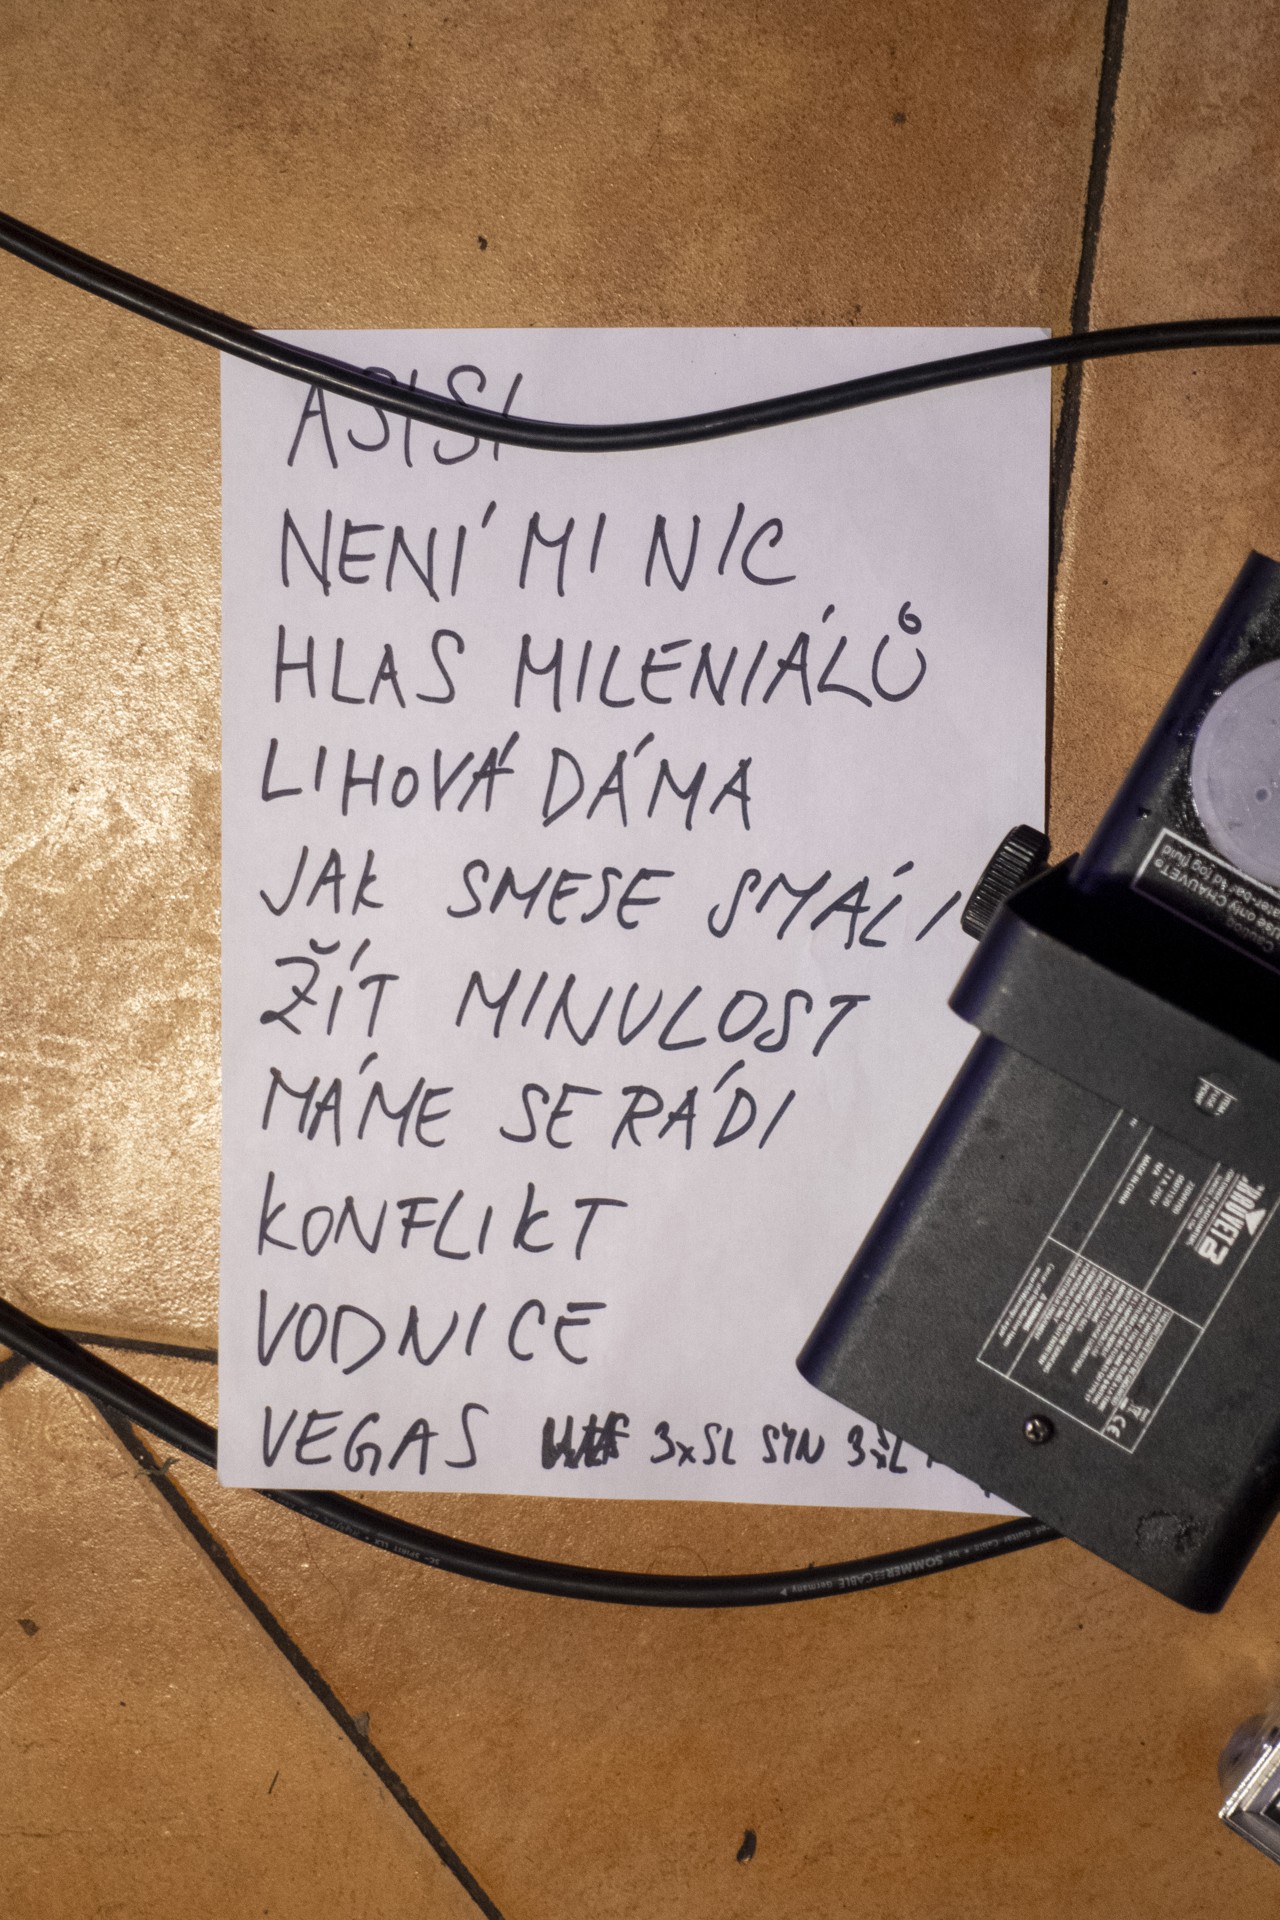 ASISI
NENÍ MI NIC
HLAS MILENIÁLŮ
LIHOVÁ DÁMA
JAK SMESE SMÁLI
ŽÍT MINULOST
MÁME SE RÁDI
KONFLIKT
VODNICE
VEGAS 3xSL SYN 3xSL
use only CHAUVET®
CHAUVET
MADE IN CHINA
SOMMER CABLE Germany